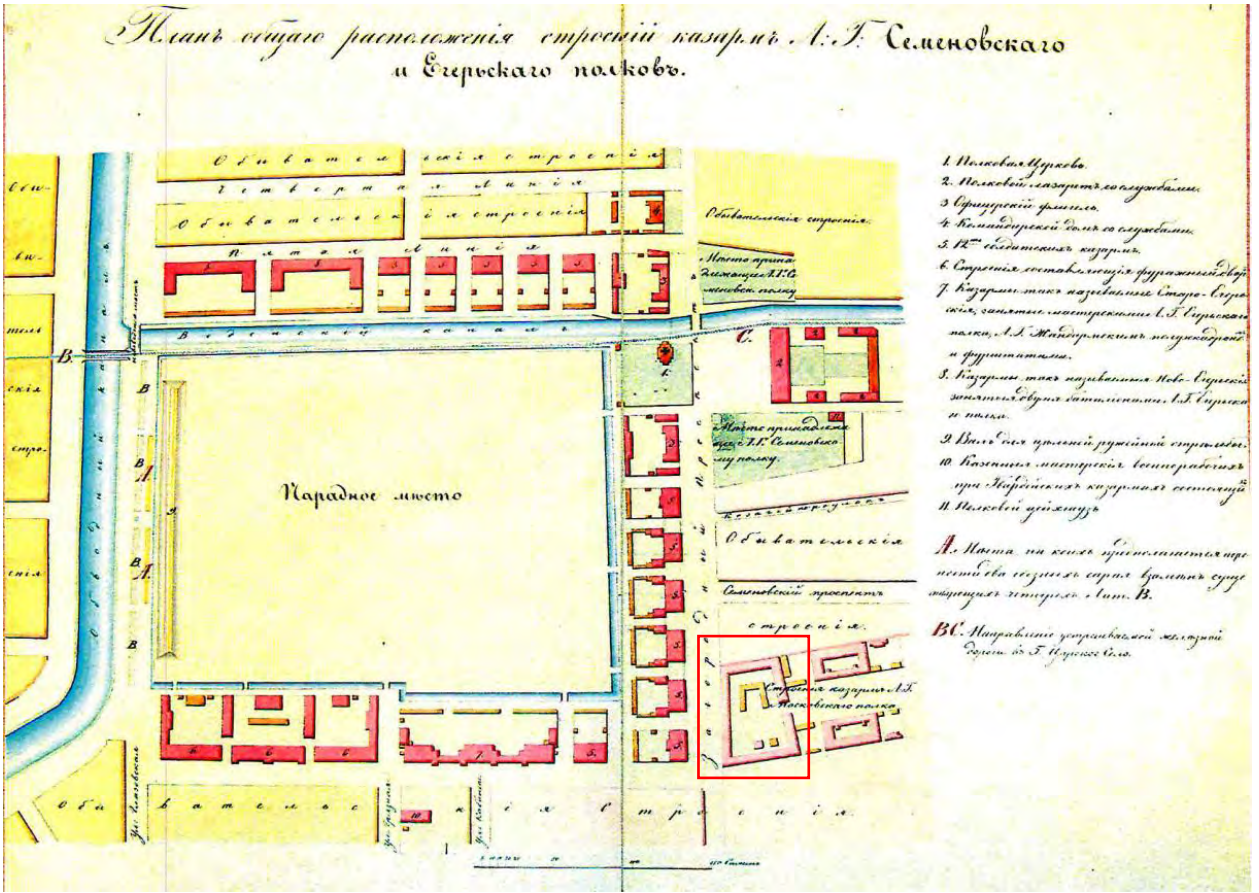 Планъ общаго расположенія строеній казармъ Л: Г: Семеновскаго
и Егерьскаго полковъ.
Обыватель скія строенія
Четвертая линія
Обывательскія строенія
Пятая линія
Обывательскія строенія.
Мѣсто прина
длежащее Л.Г. С
меновск. полку
Введенскій каналъ
Обводный каналъ
Парадное мѣсто
Загородный прос
Мѣсто принадлежа
щее Л.Г. Семеновско
му полку.
Обывательскія
Семеновскій проспектъ
строенія.
Строенія казармъ Л.Г.
Московскаго полка
Обывательскія Строенія.
1. Полковая Церковь.
2. Полковой лазаретъ со службами.
3. Офицерскій флигель.
4. Командирской домъ со службами.
5. 12ть солдатскихъ казармъ.
6. Строенія составляющія фуражный дворъ
7. Казармы такъ называемыя Старо-Егерь
скія, занятые мастерскими Л.Г. Егерьскаго
полка, Л.Г. Жандармскимъ полуэскадрономъ
и фурштатами.
8. Казармы такъ называемыя Ново-Егерьскія
занятыя двумя баталіонами Л.Г. Егерьска
го полка.
9. Валъ для цѣльной ружейной стрѣльбы.
10. Казенныя мастерскія военнорабочихъ
при Гвардейскихъ казармахъ состоящій
11. Полковой цейхаузъ
А. Мѣста на коихъ предполагается пере
нести два обозныхъ сарая взамѣнъ суще
ствующихъ четырехъ Лит. В.
ВС. Направленіе устраиваемой желѣзной
дороги въ Г. Царское Село.